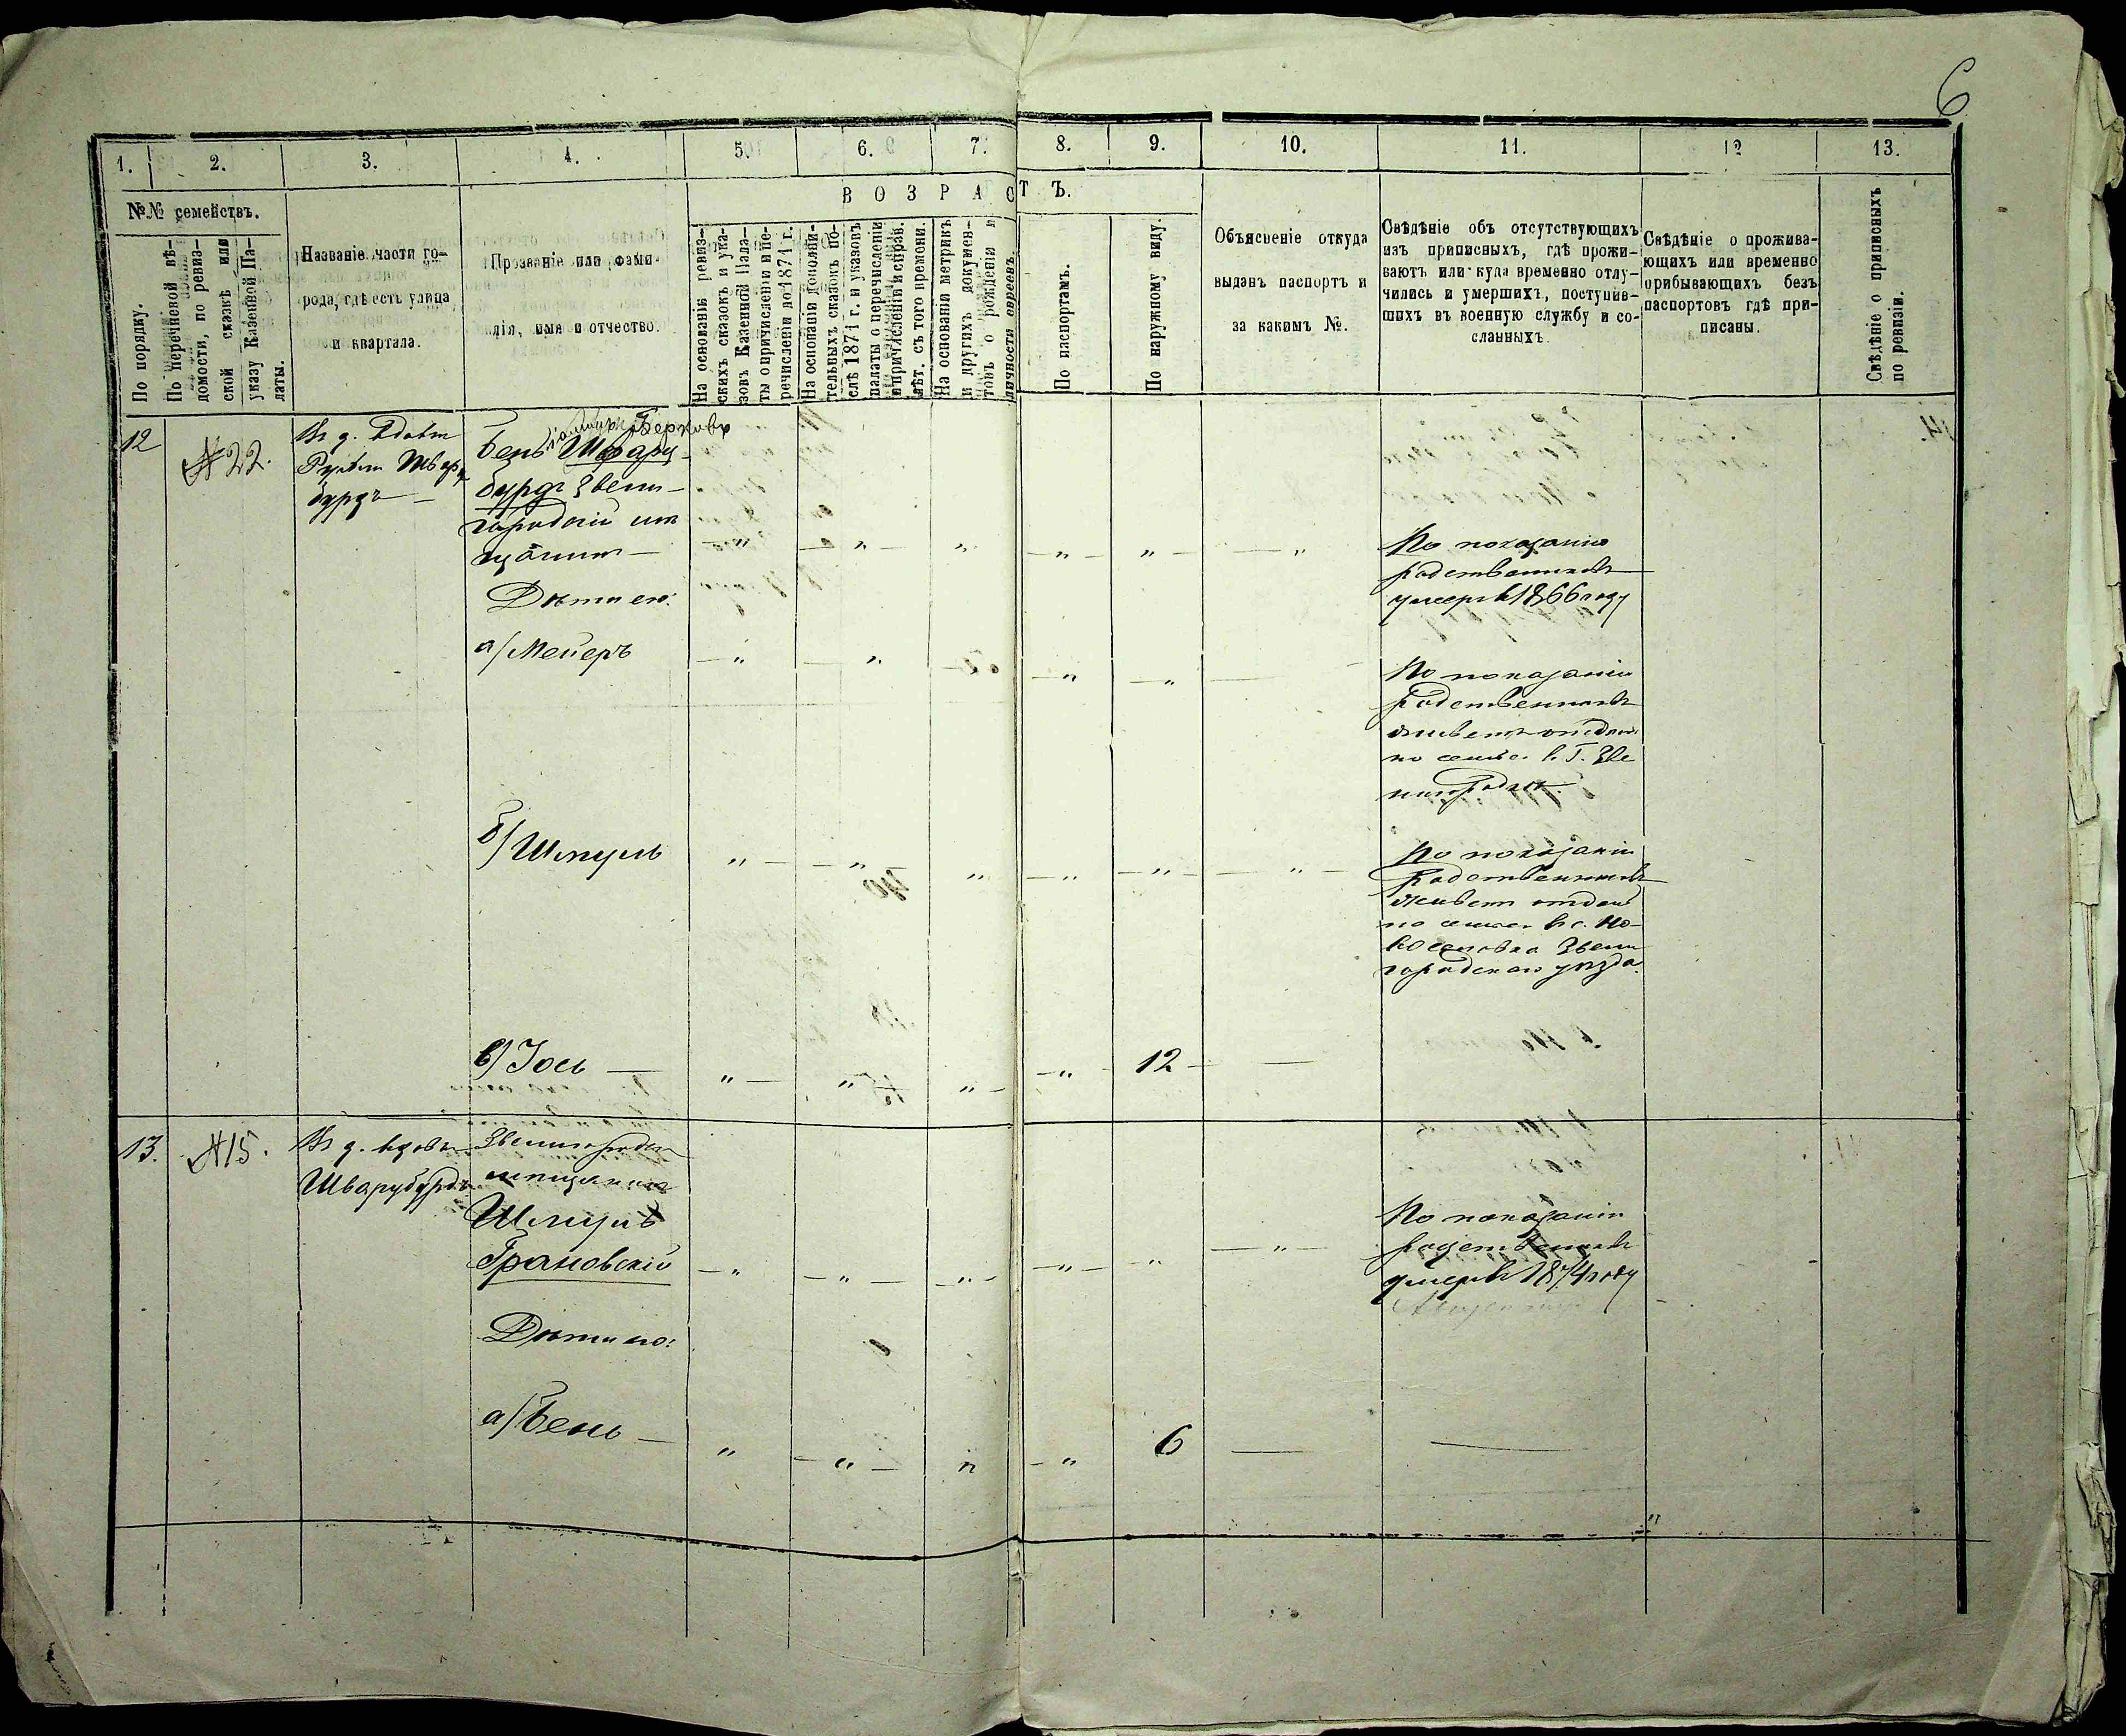 6
1. 2. 3. 4. 5. 6. 7. 8. 9. 10. 11. 12 13.
№№ семействъ.
По порядку.
По перечневой вѣ-
домости, по ревиз-
ской сказкѣ или
указу Казенной Па-
латы.
Названіе части го-
рода, гдѣ есть улица
и квартала.
Прозваніе или фами-
лія, имя и отчество.
ВОЗРАСТЪ.
На основаніи ревиз-
скихъ сказокъ и ука-
зовъ Казенной Пала-
ты о причисленіи и пе-
речисленіи по 1874 г.
На основаніи дополни-
тельныхъ сказокъ по-
слѣ 1874 г. и указовъ
палаты о перечисленіи
и причисленіи и справ.
лѣт. съ того времени.
На основаніи метрикъ
и другихъ докумен-
товъ о рожденіи и
личности евреевъ.
По паспортамъ.
По наружному виду.
Объясненіе откуда
выданъ паспортъ и
за какимъ №.
Свѣдѣніе объ отсутствующихъ
изъ приписныхъ, гдѣ прожи-
ваютъ или куда временно отлу-
чились и умершихъ, поступив-
шихъ въ военную службу и со-
сланныхъ.
Свѣдѣніе о прожива-
ющихъ или временно
прибывающихъ безъ
паспортовъ гдѣ при-
писаны.
Свѣдѣніе о приписныхъ
по ревизіи.
12
№ 22.
Въ д. Вдовы
Швар
бурдъ
Берковъ
Бень Шварц-
бурдъ Звени-
городскій мѣ
щанинъ
По показанію
родственниковъ
умеръ въ 1866 году
Дѣти его:
а) Мейеръ
По показанію
родственниковъ
живетъ отдѣль
но семьею в. Г. Зве
нигородкѣ.
б) Шмуль
По показанію
родственниковъ
живетъ отдѣль
но семьею въ с. Но-
Звени
городскаго уѣзда.
в) Іось
12
13.
№ 15.
Въ д. вдовы
Шварцбурдъ
Звенигородск
мѣщанинъ
Шмуль
Грановскій
По показанію
родственниковъ
умеръ въ 1874 году
Дѣти его:
а) Бень
6